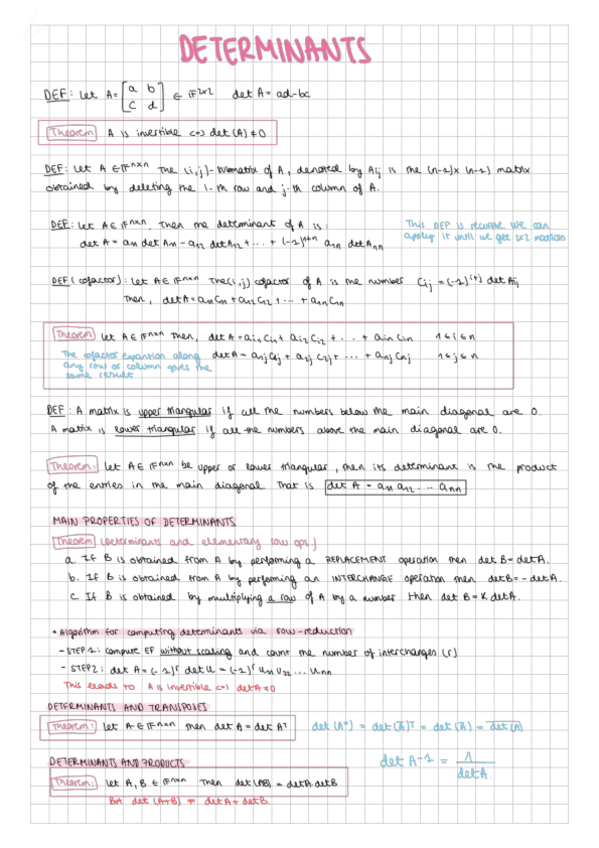 DETERMINANTS
DEF: Let A = [a b; c d] ∈ F^2x2 det A = ad-bc
Theorem A is invertible <=> det (A) ≠ 0
DEF: Let A ∈ F^nxn The (i,j)-submatrix of A, denoted by Aij is the (n-1)x(n-1) matrix
obtained by deleting the i-th row and j-th column of A.
DEF: Let A ∈ F^nxn. Then the determinant of A is:
det A = a11 det A11 - a12 det A12 + ... + (-1)^1+n a1n det A1n
This DEF is recursive we can
apply it until we get 2x2 matrices
DEF (cofactor): Let A ∈ F^nxn The (i,j) cofactor of A is the number Cij = (-1)^i+j det Aij
Then, det A = a11 C11 + a12 C12 + ... + a1n C1n
Theorem Let A ∈ F^nxn Then, det A = ai1 Ci1 + ai2 Ci2 + ... + ain Cin 1≤i≤n
The cofactor expantion along det A = a1j C1j + a2j C2j + ... + anj Cnj 1≤j≤n
any row or column gives the
same result
DEF: A matrix is upper triangular if all the numbers below the main diagonal are 0.
A matrix is lower triangular if all the numbers above the main diagonal are 0.
Theorem: Let A ∈ F^nxn be upper or lower triangular, then its determinant is the product
of the entries in the main diagonal That is det A = a11 a12 ... ann
MAIN PROPERTIES OF DETERMINANTS
Theorem (Determinants and elementary row ops.)
a. If B is obtained from A by performing a REPLACEMENT operation then det B = det A.
b. If B is obtained from A by performing an INTERCHANGE operation then det B = - det A.
c. If B is obtained by multiplying a row of A by a number then det B = K det A.
• Algorithm for computing determinants via row-reduction
- STEP 1: compute EF without scaling and count the number of interchanges (r)
- STEP 2: det A = (-1)^r det U = (-1)^r U11 U22 ... Unn
This leads to A is invertible <=> det A ≠ 0
DETERMINANTS AND TRANSPOSES
Theorem: Let A ∈ F^nxn then det A = det A^T
det (A*) = det (A̅)^T = det (A̅) = \overline{det (A)}
DETERMINANTS AND PRODUCTS
det A^-1 = 1 / det A
Theorem: Let A, B ∈ F^nxn Then det (AB) = det A · det B
But det (A+B) ≠ det A + det B